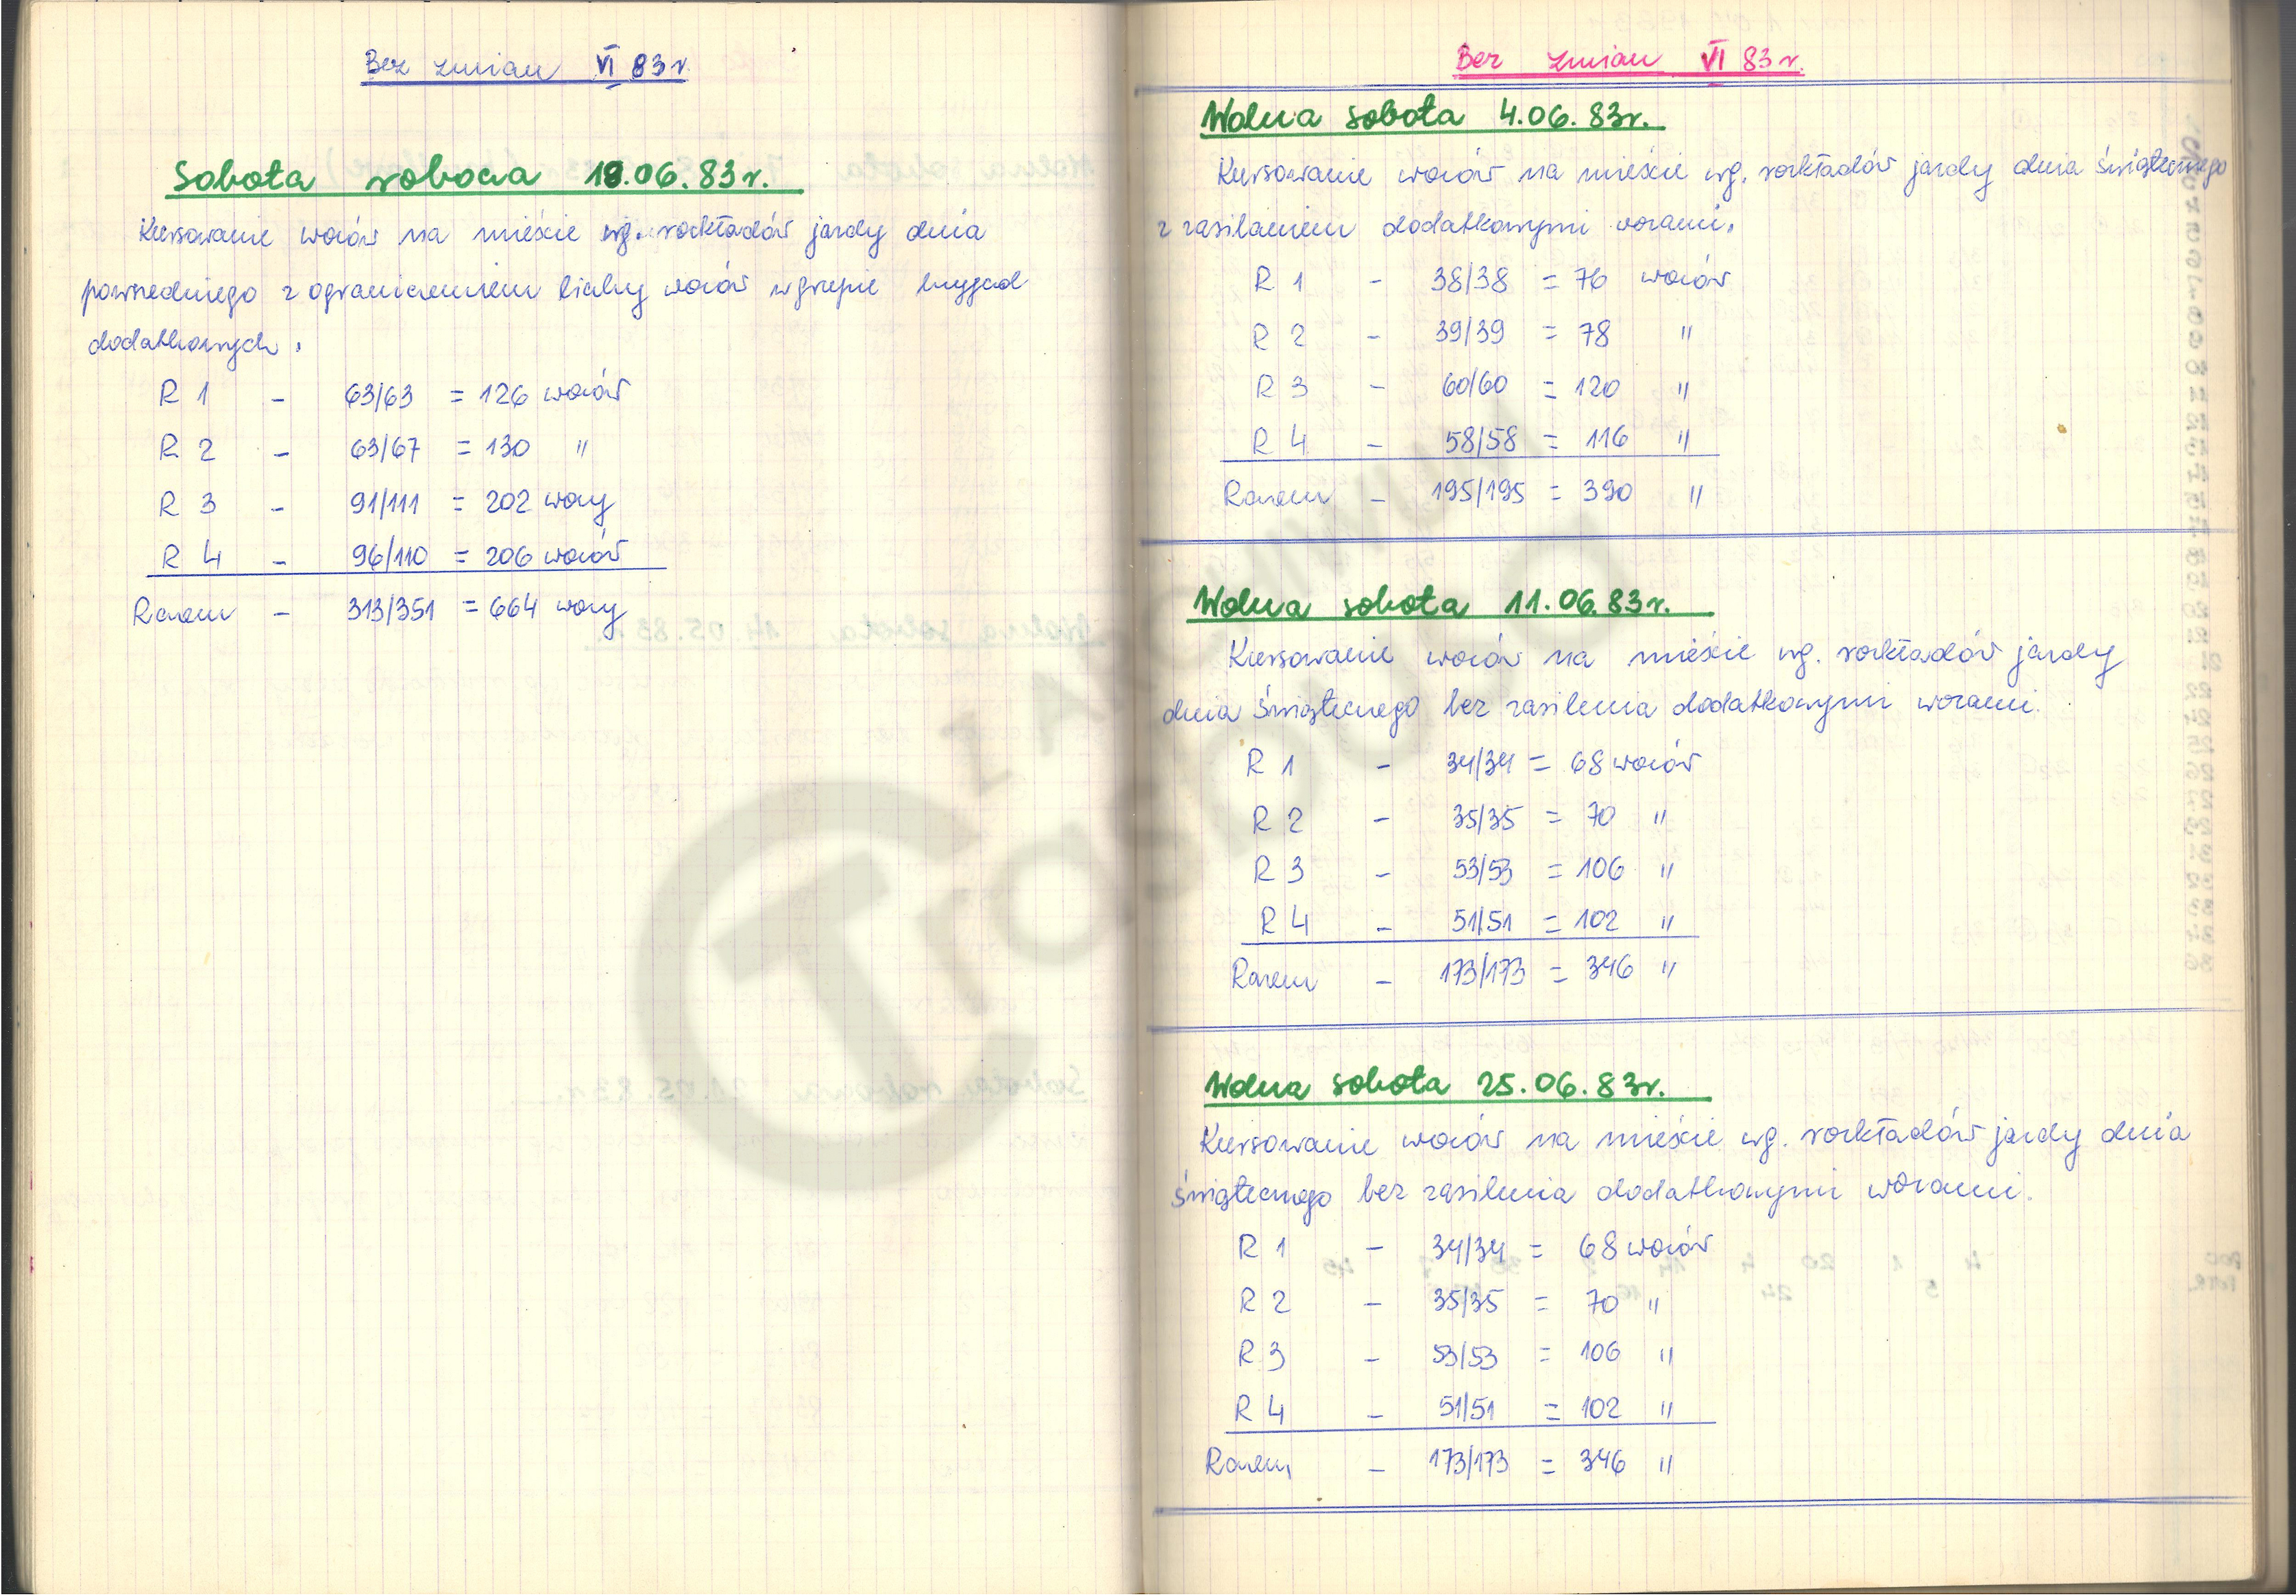 Bez zmian VI 83 r.
Sobota robocza 18.06.83r.
Kursowanie wozów na mieście wg. rozkładów jazdy dnia
powszedniego z ograniczeniem liczby wozów w grupie brygad
dodatkowych.
R 1 - 63/63 = 126 wozów
R 2 - 63/67 = 130 "
R 3 - 91/111 = 202 wozy
R 4 - 96/110 = 206 wozów
Razem - 313/351 = 664 wozy
Bez zmian VI 83 r.
Wolna sobota 4.06.83r.
Kursowanie wozów na mieście wg. rozkładów jazdy dnia świątecznego
z zasilaniem dodatkowymi wozami.
R 1 - 38/38 = 76 wozów
R 2 - 39/39 = 78 "
R 3 - 60/60 = 120 "
R 4 - 58/58 = 116 "
Razem - 195/195 = 390 "
Wolna sobota 11.06.83r.
Kursowanie wozów na mieście wg. rozkładów jazdy
dnia świątecznego bez zasilenia dodatkowymi wozami.
R 1 - 34/34 = 68 wozów
R 2 - 35/35 = 70 "
R 3 - 53/53 = 106 "
R 4 - 51/51 = 102 "
Razem - 173/173 = 346 "
Wolna sobota 25.06.83r.
Kursowanie wozów na mieście wg. rozkładów jazdy dnia
świątecznego bez zasilenia dodatkowymi wozami.
R 1 - 34/34 = 68 wozów
R 2 - 35/35 = 70 "
R 3 - 53/53 = 106 "
R 4 - 51/51 = 102 "
Razem - 173/173 = 346 "